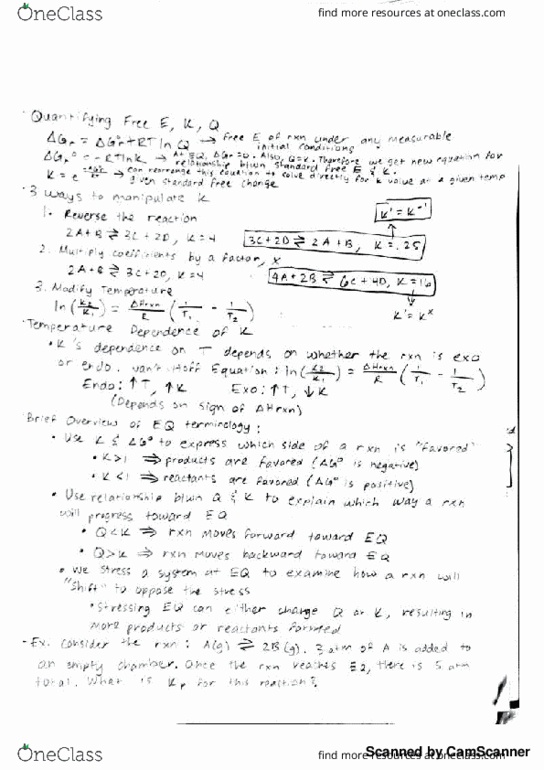 OneClass
find more resources at oneclass.com
- Quantifying Free E, K, Q
ΔGr = ΔG°r + RT ln Q → free E of rxn under any measurable initial conditions
ΔGr° = -RT ln K → At EQ, ΔGr = 0. Also, Q=K. Therefore we get new equation for relationship btwn standard free E & K.
K = e^(-ΔG°/RT) → can rearrange this equation to solve directly for K value at a given temp & given standard free change
- 3 Ways to manipulate K
K' = K⁻¹
1. Reverse the reaction
2A+B ⇌ 3C+2D, K=4
3C+2D ⇌ 2A+B, K=.25
2. Multiply coefficients by a factor, x
2A+B ⇌ 3C+2D, K=4
4A+2B ⇌ 6C+4D, K=16
K' = Kˣ
3. Modify Temperature
ln(K2/K1) = ΔHrxn/R (1/T1 - 1/T2)
- Temperature Dependence of K
• K's dependence on T depends on whether the rxn is exo
or endo. Van't Hoff Equation: ln(K2/K1) = ΔHrxn/R (1/T1 - 1/T2)
Endo: ↑T, ↑K Exo: ↑T, ↓K
(Depends on sign of ΔHrxn)
- Brief Overview of EQ terminology:
• Use K & ΔG° to express which side of a rxn is "favored"
• K>1 ⇒ products are favored (ΔG° is negative)
• K<1 ⇒ reactants are favored (ΔG° is positive)
• Use relationship btwn Q & K to explain which way a rxn
will progress toward EQ
• Q<K ⇒ rxn moves forward toward EQ
• Q>K ⇒ rxn moves backward toward EQ
• We stress a system at EQ to examine how a rxn will
"shift" to oppose the stress
• Stressing EQ can either change Q or K, resulting in
more products or reactants formed
- Ex. Consider the rxn: A(g) ⇌ 2B(g). 3 atm of A is added to
an empty chamber. Once the rxn reaches EQ, there is 5 atm
total. What is Kp for this reaction?
Scanned by CamScanner
OneClass
find more resources at oneclass.com